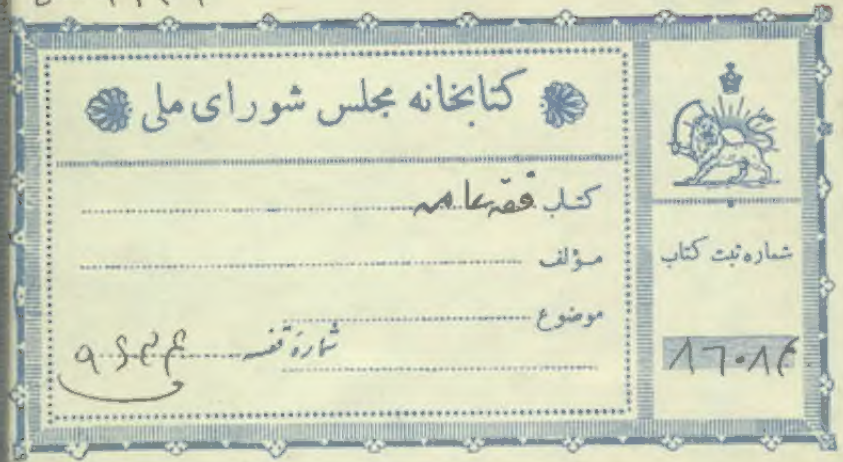 کتابخانه مجلس شورای ملی
کتاب فقه عامه
مؤلف
موضوع
شماره قفسه
شماره ثبت کتاب
۸۶۰۸۴